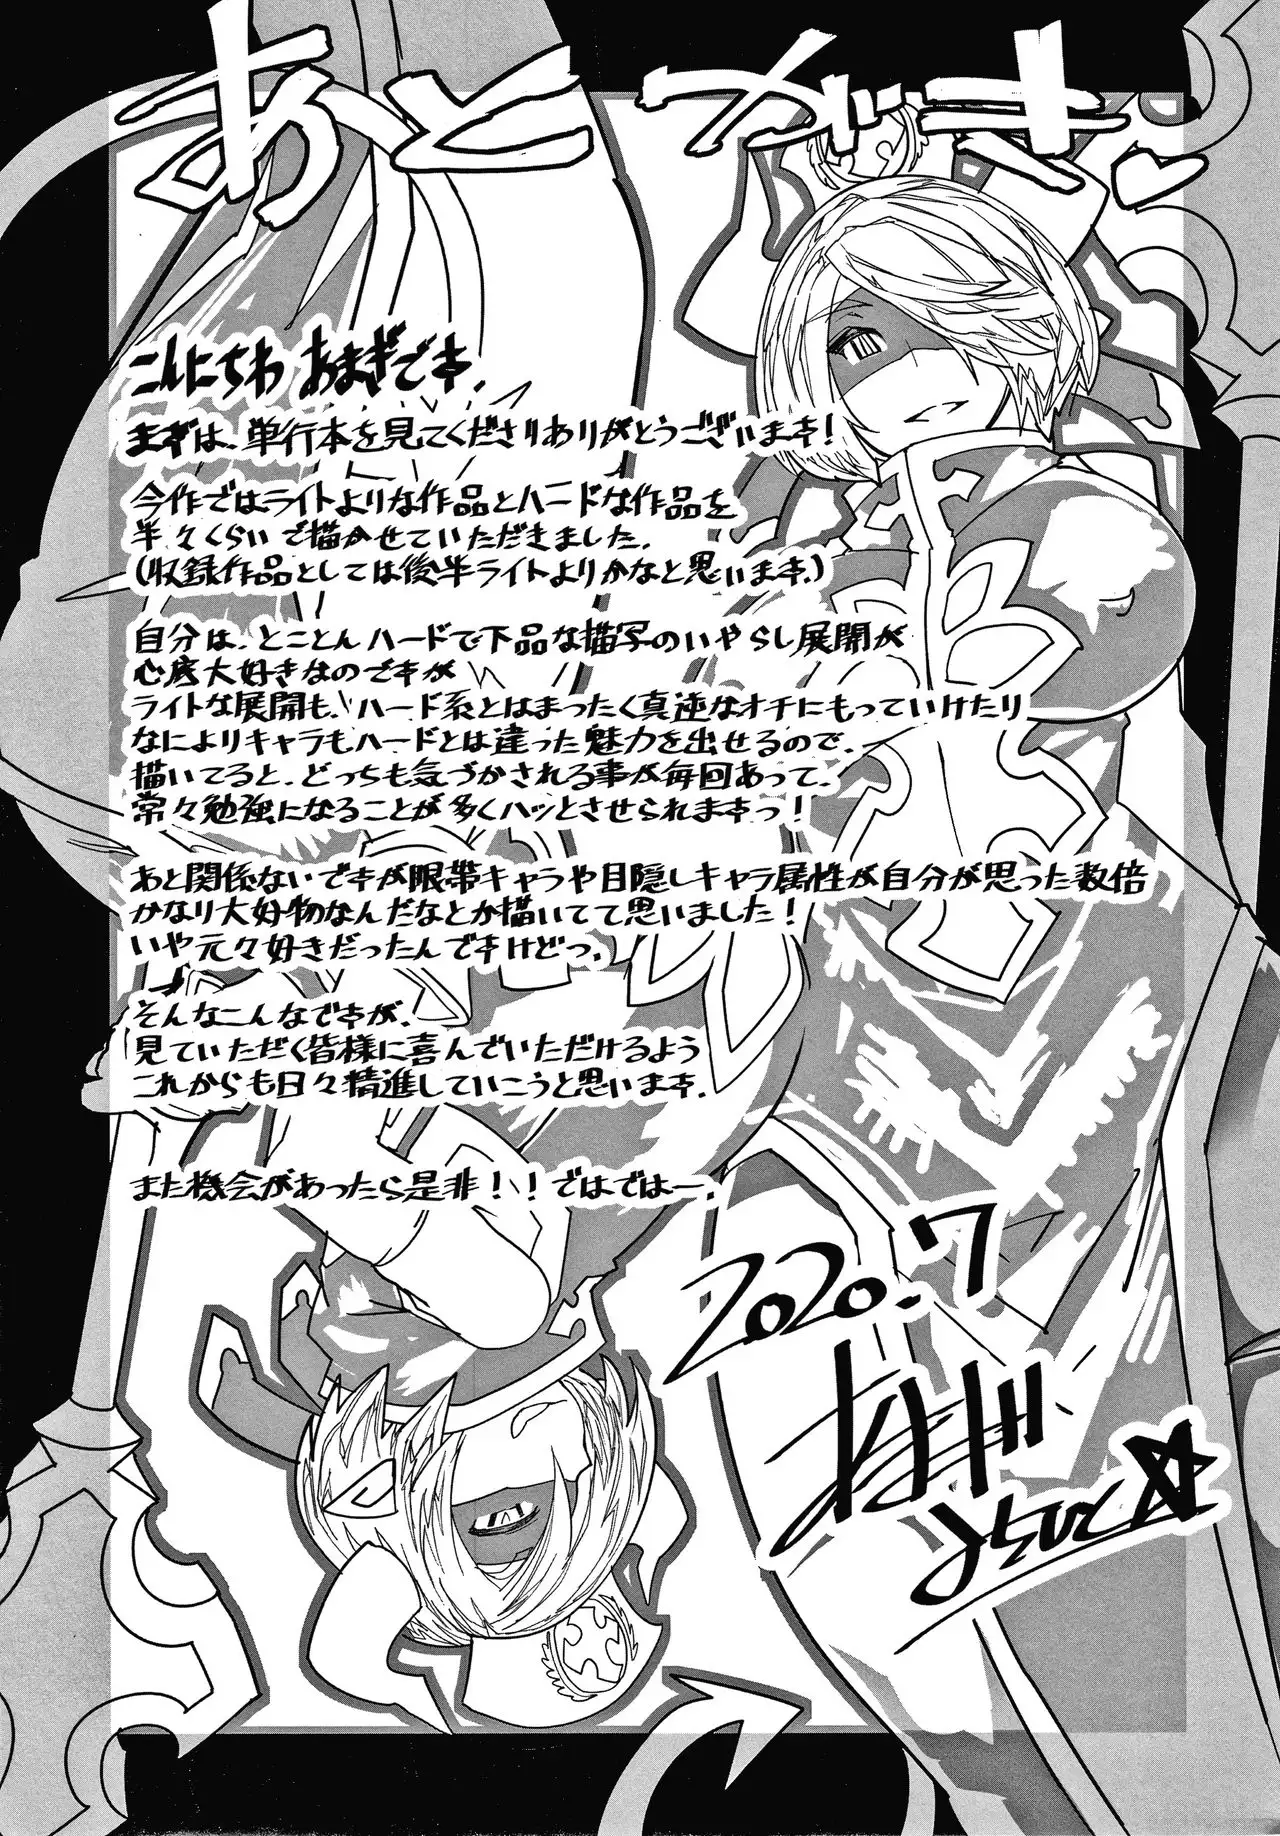 あとがき♡
こんにちわ あまぎです.
まずは、単行本を見てくださりありがとうございます!
今作ではライトよりな作品とハードな作品を
半々くらいで描かせていただきました.
(収録作品としては後半ライトよりかなと思います.)
自分は、とことんハードで下品な描写のいやらし展開が
心底大好きなのですが
ライトな展開も、ハード系とはまったく真逆なオチにもっていけたり
なによりキャラもハードとは違った魅力を出せるので、
描いてると、どっちも気づかされる事が毎回あって、
常々勉強になることが多くハッとさせられますっ!
あと関係ないですが眼帯キャラや目隠しキャラ属性が自分が思った数倍
かなり大好物なんだなとか描いてて思いました!
いや元々好きだったんですけどっ.
そんなこんなですが、
見ていただく皆様に喜んでいただけるよう
これからも日々精進していこうと思います.
また機会があったら是非!!ではではー.
2020.7
みちひと☆